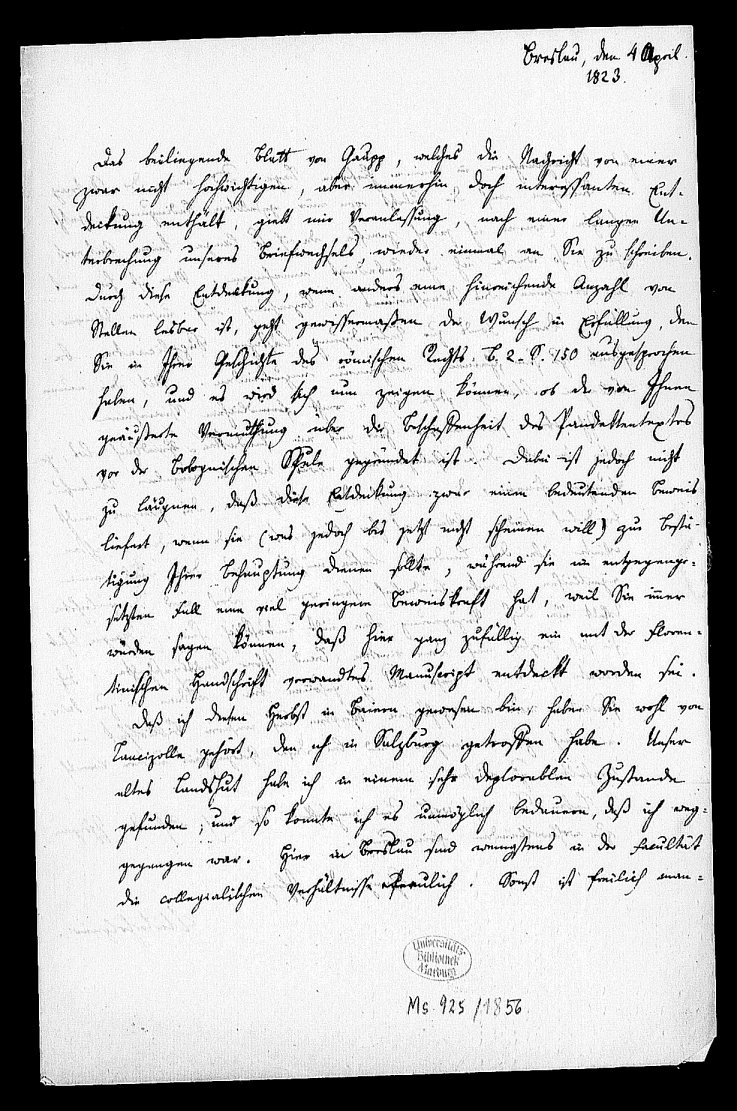 Breslau, den 4 April.
1823.
Das beiliegende Blatt von Gaupp, welches die Nachricht von einer
zwar nicht hochwichtigen, aber immerhin doch interessanten Ent-
deckung enthält, giebt mir Veranlassung, nach einer langen Un-
terbrechung unseres Briefwechsels wieder einmal an Sie zu schreiben.
Durch diese Entdeckung, wenn anders eine hinreichende Anzahl von
Stellen lesbar ist, geht gewissermaßen der Wunsch in Erfüllung, den
Sie in Ihrer Geschichte des römischen Rechts B. 2. S. 150 ausgesprochen
haben, und es wird sich nun zeigen können, ob die von Ihnen
geäußerte Vermuthung über die Beschaffenheit des Pandektentextes
vor der Bolognischen Schule gegründet ist. Dabei ist jedoch nicht
zu läugnen, daß diese Entdeckung zwar einen bedeutenden Beweis
liefert, wenn sie (was jedoch bis jetzt nicht scheinen will) zur Bestä-
tigung Ihrer Behauptung dienen sollte, während sie im entgegenge-
setzten Fall eine viel geringere Beweiskraft hat, weil Sie immer
würden sagen können, daß hier ganz zufällig ein mit der Floren-
tinischen Handschrift verwandtes Manuscript entdeckt worden sei.
Daß ich diesen Herbst in Baiern gewesen bin, haben Sie wohl von
Lancizolle gehört, den ich in Salzburg getroffen habe. Unser
altes Landshut habe ich in einem sehr deplorablen Zustande
gefunden, und so konnte ich es unmöglich bedauern, daß ich weg-
gegangen war. Hier in Breslau sind wenigstens in der Facultät
die collegialischen Verhältnisse erfreulich. Sonst ist freilich man-
Universitäts-
Bibliothek
Marburg
Ms. 925/1856